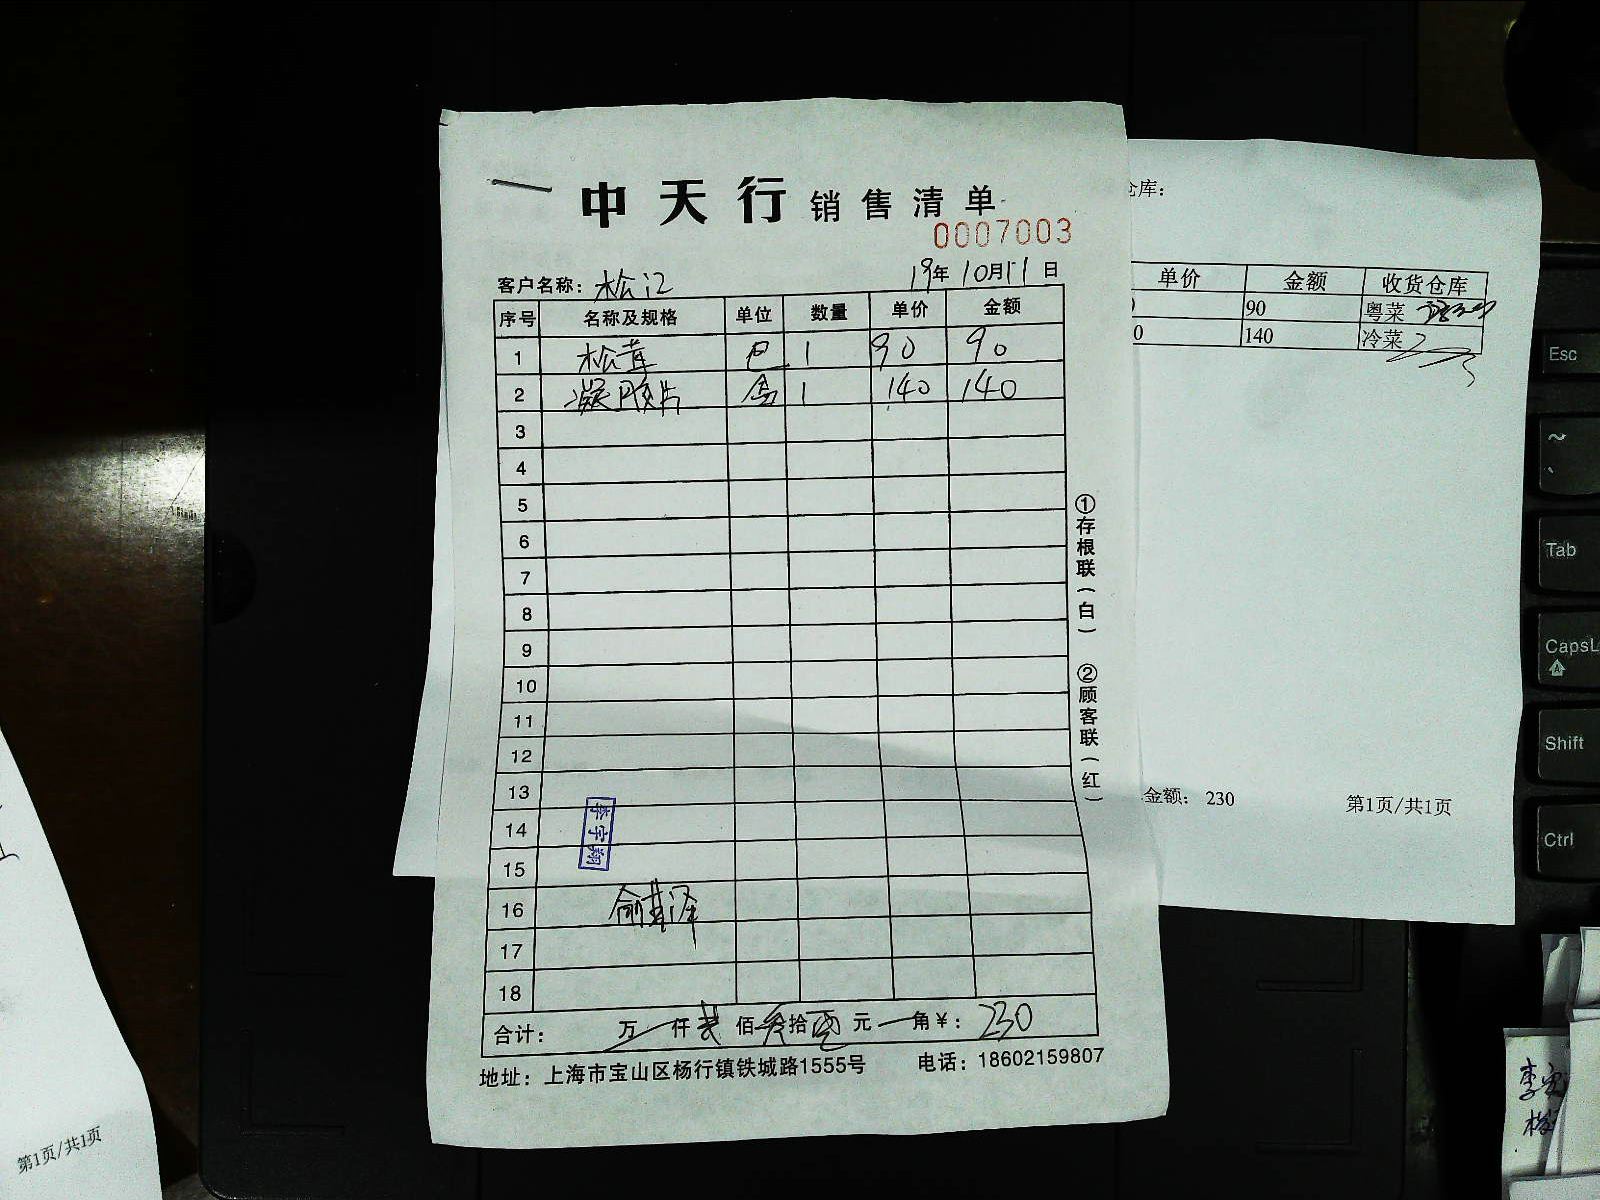 中天行销售清单
0007003
客户名称：松江 19年10月11日
序号 名称及规格 单位 数量 单价 金额
1 松茸 包 1 90 90
2 凝胶片 盒 1 140 140
3
4
5
6
7
8
9
10
11
12
13
14
15
16
17
18
李宇翔
合计： 万 仟 贰 佰 叁 拾 零 元 角 ¥：230
地址：上海市宝山区杨行镇铁城路1555号 电话：18602159807
①存根联（白） ②顾客联（红）
仓库：
单价 金额 收货仓库
90 粤菜
0 140 冷菜
金额：230 第1页/共1页
第1页/共1页
Esc
~
Tab
CapsL
Shift
Ctrl